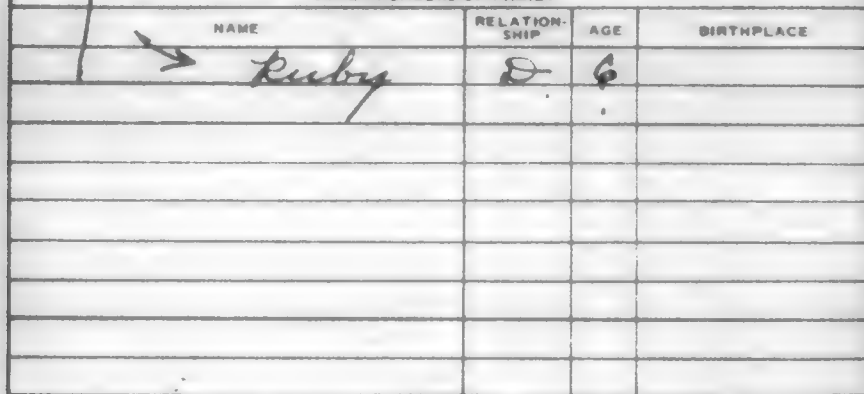 NAME RELATION-SHIP AGE BIRTHPLACE
Ruby D 6